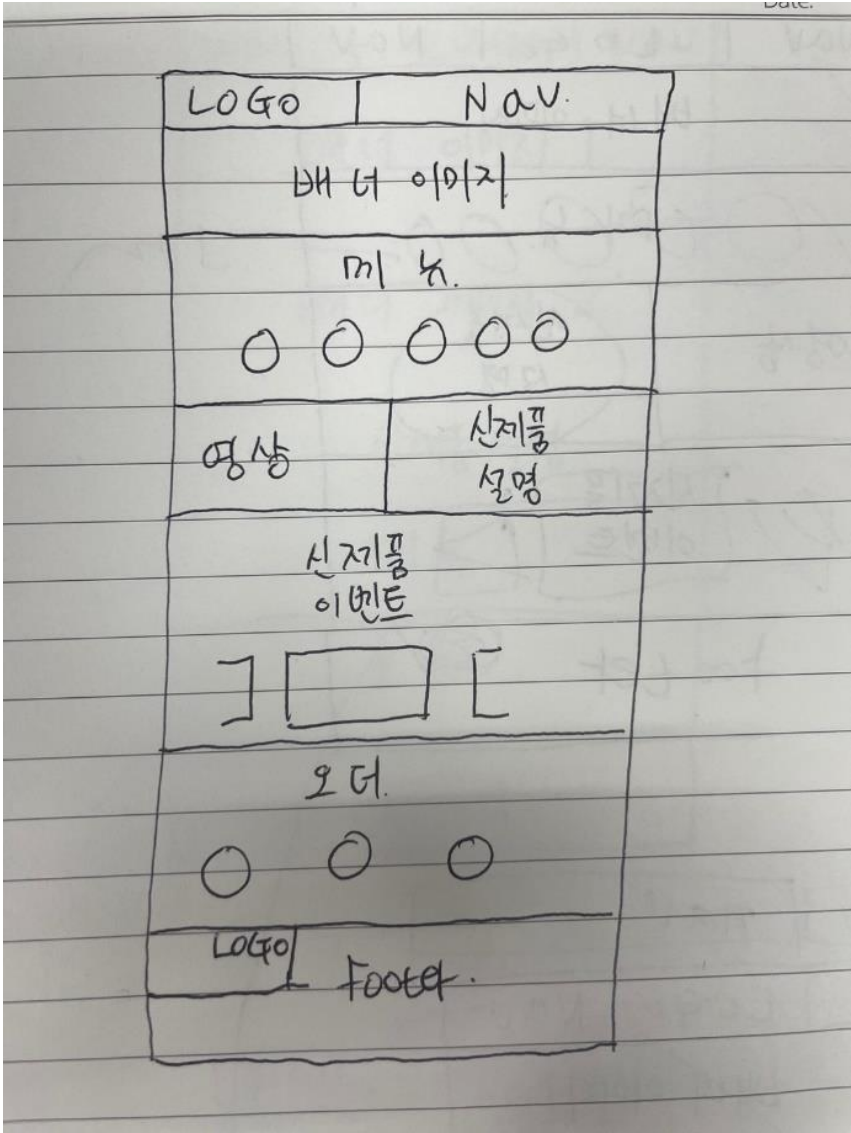 Date.
LOGO
Nav.
배너 이미지
메뉴.
영상
신제품
설명
신제품
이벤트
오더.
LOGO
Footer.